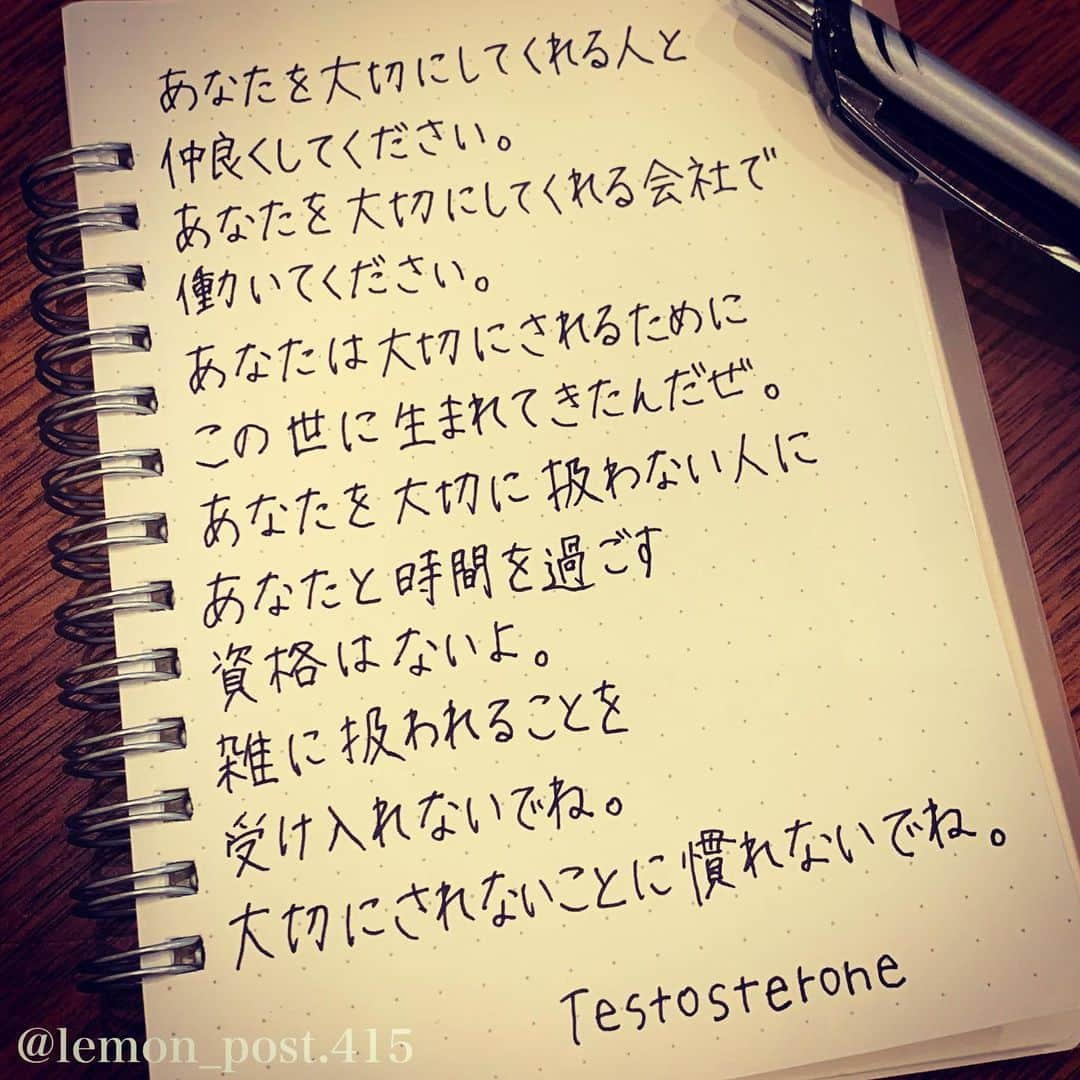 あなたを大切にしてくれる人と
仲良くしてください。
あなたを大切にしてくれる会社で
働いてください。
あなたは大切にされるために
この世に生まれてきたんだぜ。
あなたを大切に扱わない人に
あなたと時間を過ごす
資格はないよ。
雑に扱われることを
受け入れないでね。
大切にされないことに慣れないでね。
Testosterone
@lemon_post.415